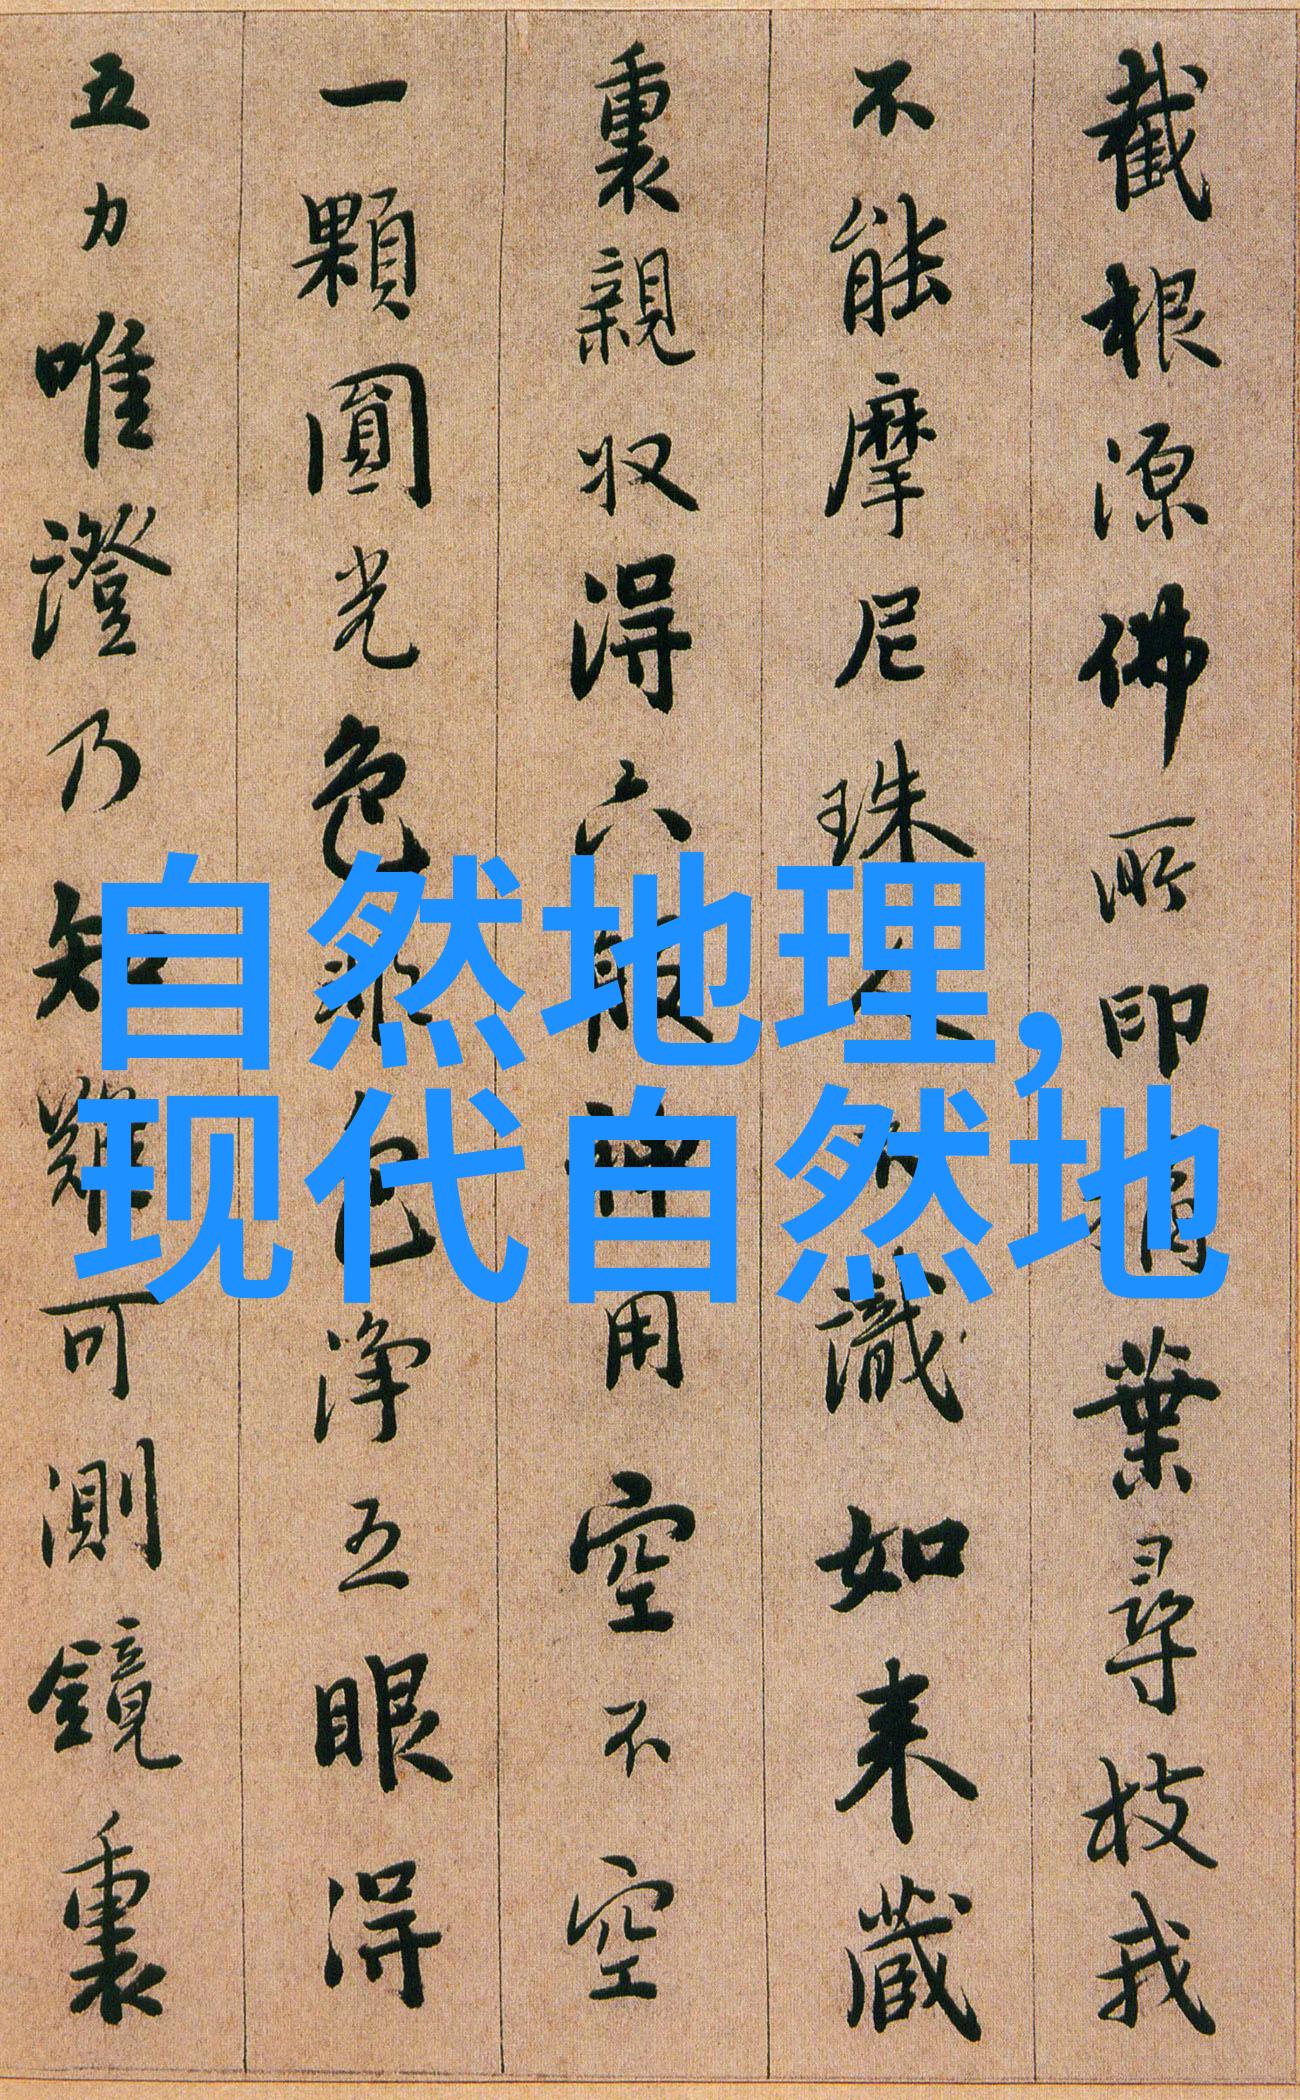 截根源佛所印摘葉尋枝我
不能摩尼珠人不識如来藏
裏親収得六般神用空不空
一顆圓光色非色淨五眼得
五力唯證乃知難可測鏡裏
自然地理,
现代自然地